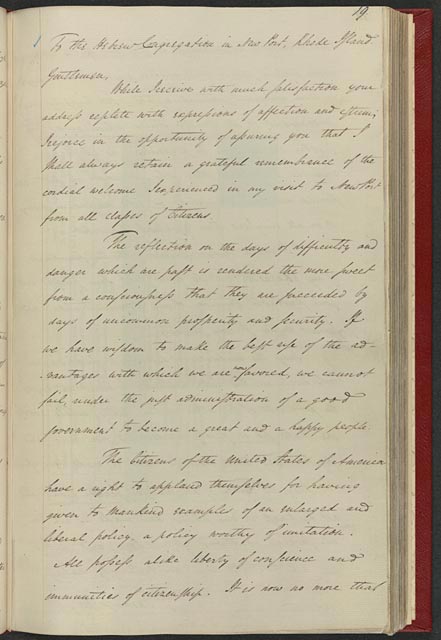 19
To the Hebrew Congregation in New Port, Rhode Island.
Gentlemen,
While I receive with much satisfaction your
address replete with expressions of affection and esteem,
I rejoice in the opportunity of assuring you that I
shall always retain a grateful remembrance of the
cordial welcome I experienced in my visit to New Port
from all classes of Citizens.
The reflection on the days of difficulty and
danger which are past is rendered the more sweet
from a consciousness that they are succeeded by
days of uncommon prosperity and security. If
we have wisdom to make the best use of the ad-
-vantages with which we are now favored, we cannot
fail, under the just administration of a good
government to become a great and a happy people.
The Citizens of the United States of America
have a right to applaud themselves for having
given to Mankind examples of an enlarged and
liberal policy, a policy worthy of imitation.
All possess alike liberty of conscience and
immunities of citizenship. It is now no more that